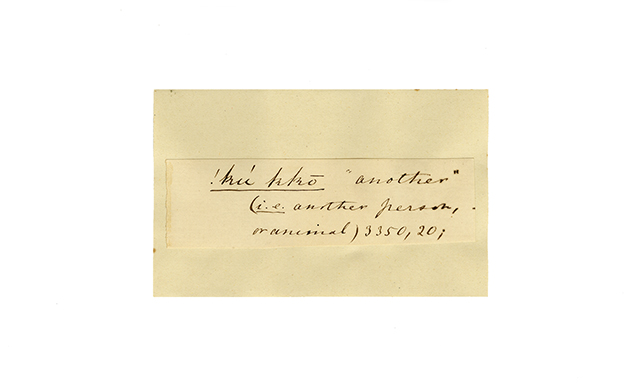 !kú kkō "another"
(i.e. another person,
or animal) 3350, 20;